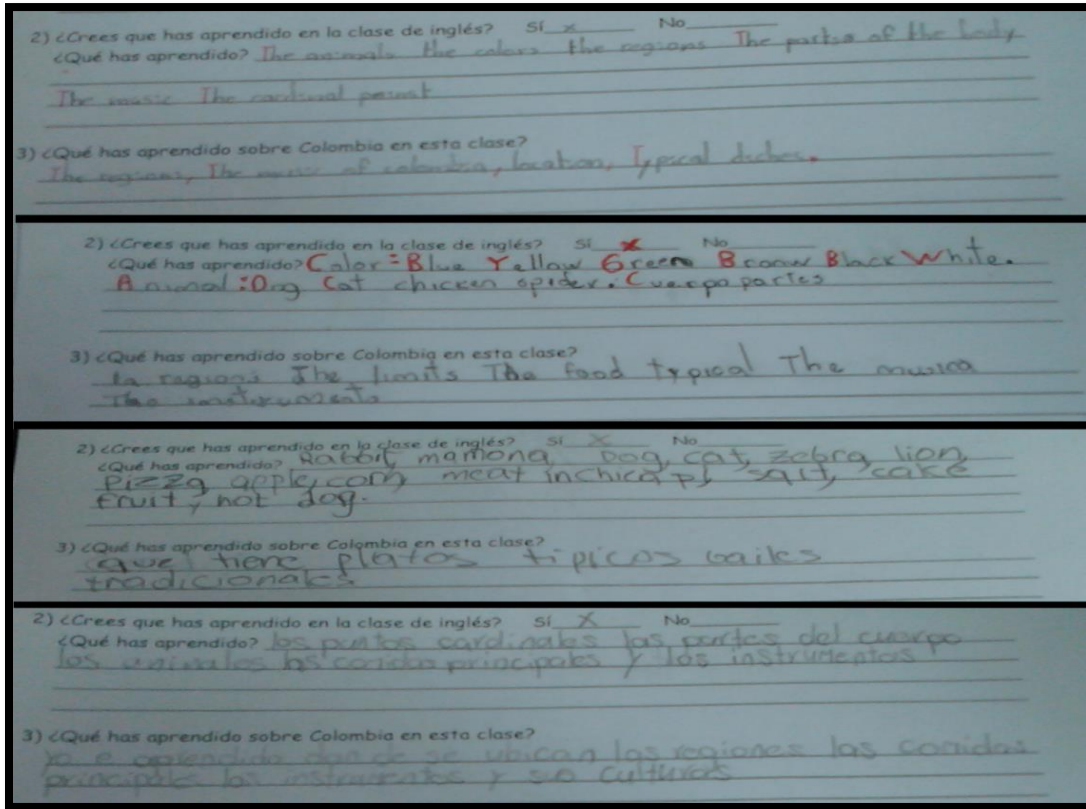 2) ¿Crees que has aprendido en la clase de inglés? Sí x No
¿Qué has aprendido? The animals the colors the regions The partso of the body
The music The cardinal point
3) ¿Qué has aprendido sobre Colombia en esta clase?
The regions, The music of colombia, location, Typical diches.
2) ¿Crees que has aprendido en la clase de inglés? Sí x No
¿Qué has aprendido? Color = Blue Yellow Green Broonw Black White.
Animal: Dog Cat chicken spider. Cuerpo partes
3) ¿Qué has aprendido sobre Colombia en esta clase?
la regions The limits The food typical The musica
The instruments
2) ¿Crees que has aprendido en la clase de inglés? Sí X No
¿Qué has aprendido? Rabbit, mamona Dog, cat, zebra, lion,
pizza, apple, corn, meat salt, cake
fruit, hot dog.
3) ¿Qué has aprendido sobre Colombia en esta clase?
que tiene platos tipicos bailes
tradicionales
2) ¿Crees que has aprendido en la clase de inglés? Sí X No
¿Qué has aprendido? los puntos cardinales las partes del cuerpo
los animales las comidas principales y los instrumentos
3) ¿Qué has aprendido sobre Colombia en esta clase?
Yo e aprendido donde se ubican las regiones las comidas
principales los instrumentos y su culturas